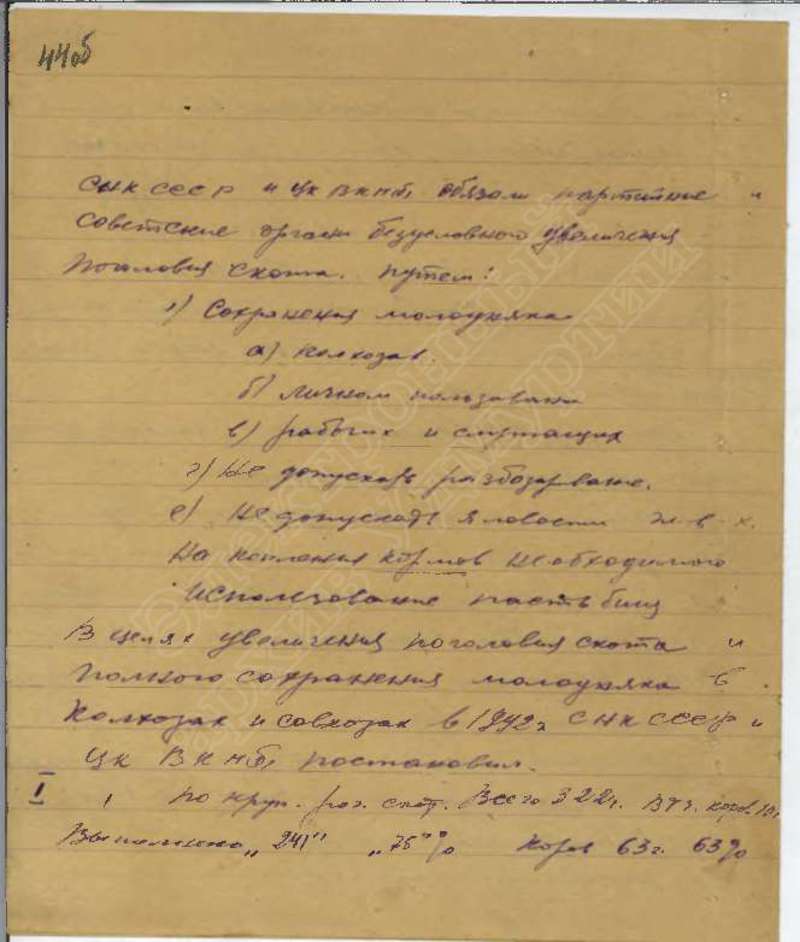 44об
СНК СССР и ЦК ВКП(б) обязали партийные и
советские органы безусловного увеличения
поголовия скота. путем:
1) Сохранения молодняка
а) колхозах.
б) личном пользовани
в) рабочих и служащих
г) Не допускать разбозарване.
е) не допускать яловости
На копления кормов необходимого
использование пастьбищ
В целях увеличения поголовия скота и
полного сохранения молодняка в
колхозах и совхозах в 1942г СНК СССР и
ЦК ВКП(б) постановил.
I 1 по круп. рог. скот. Всего 322г. В т.ч. коров
Выполнено „241" „75"% Коров 63г. 63%